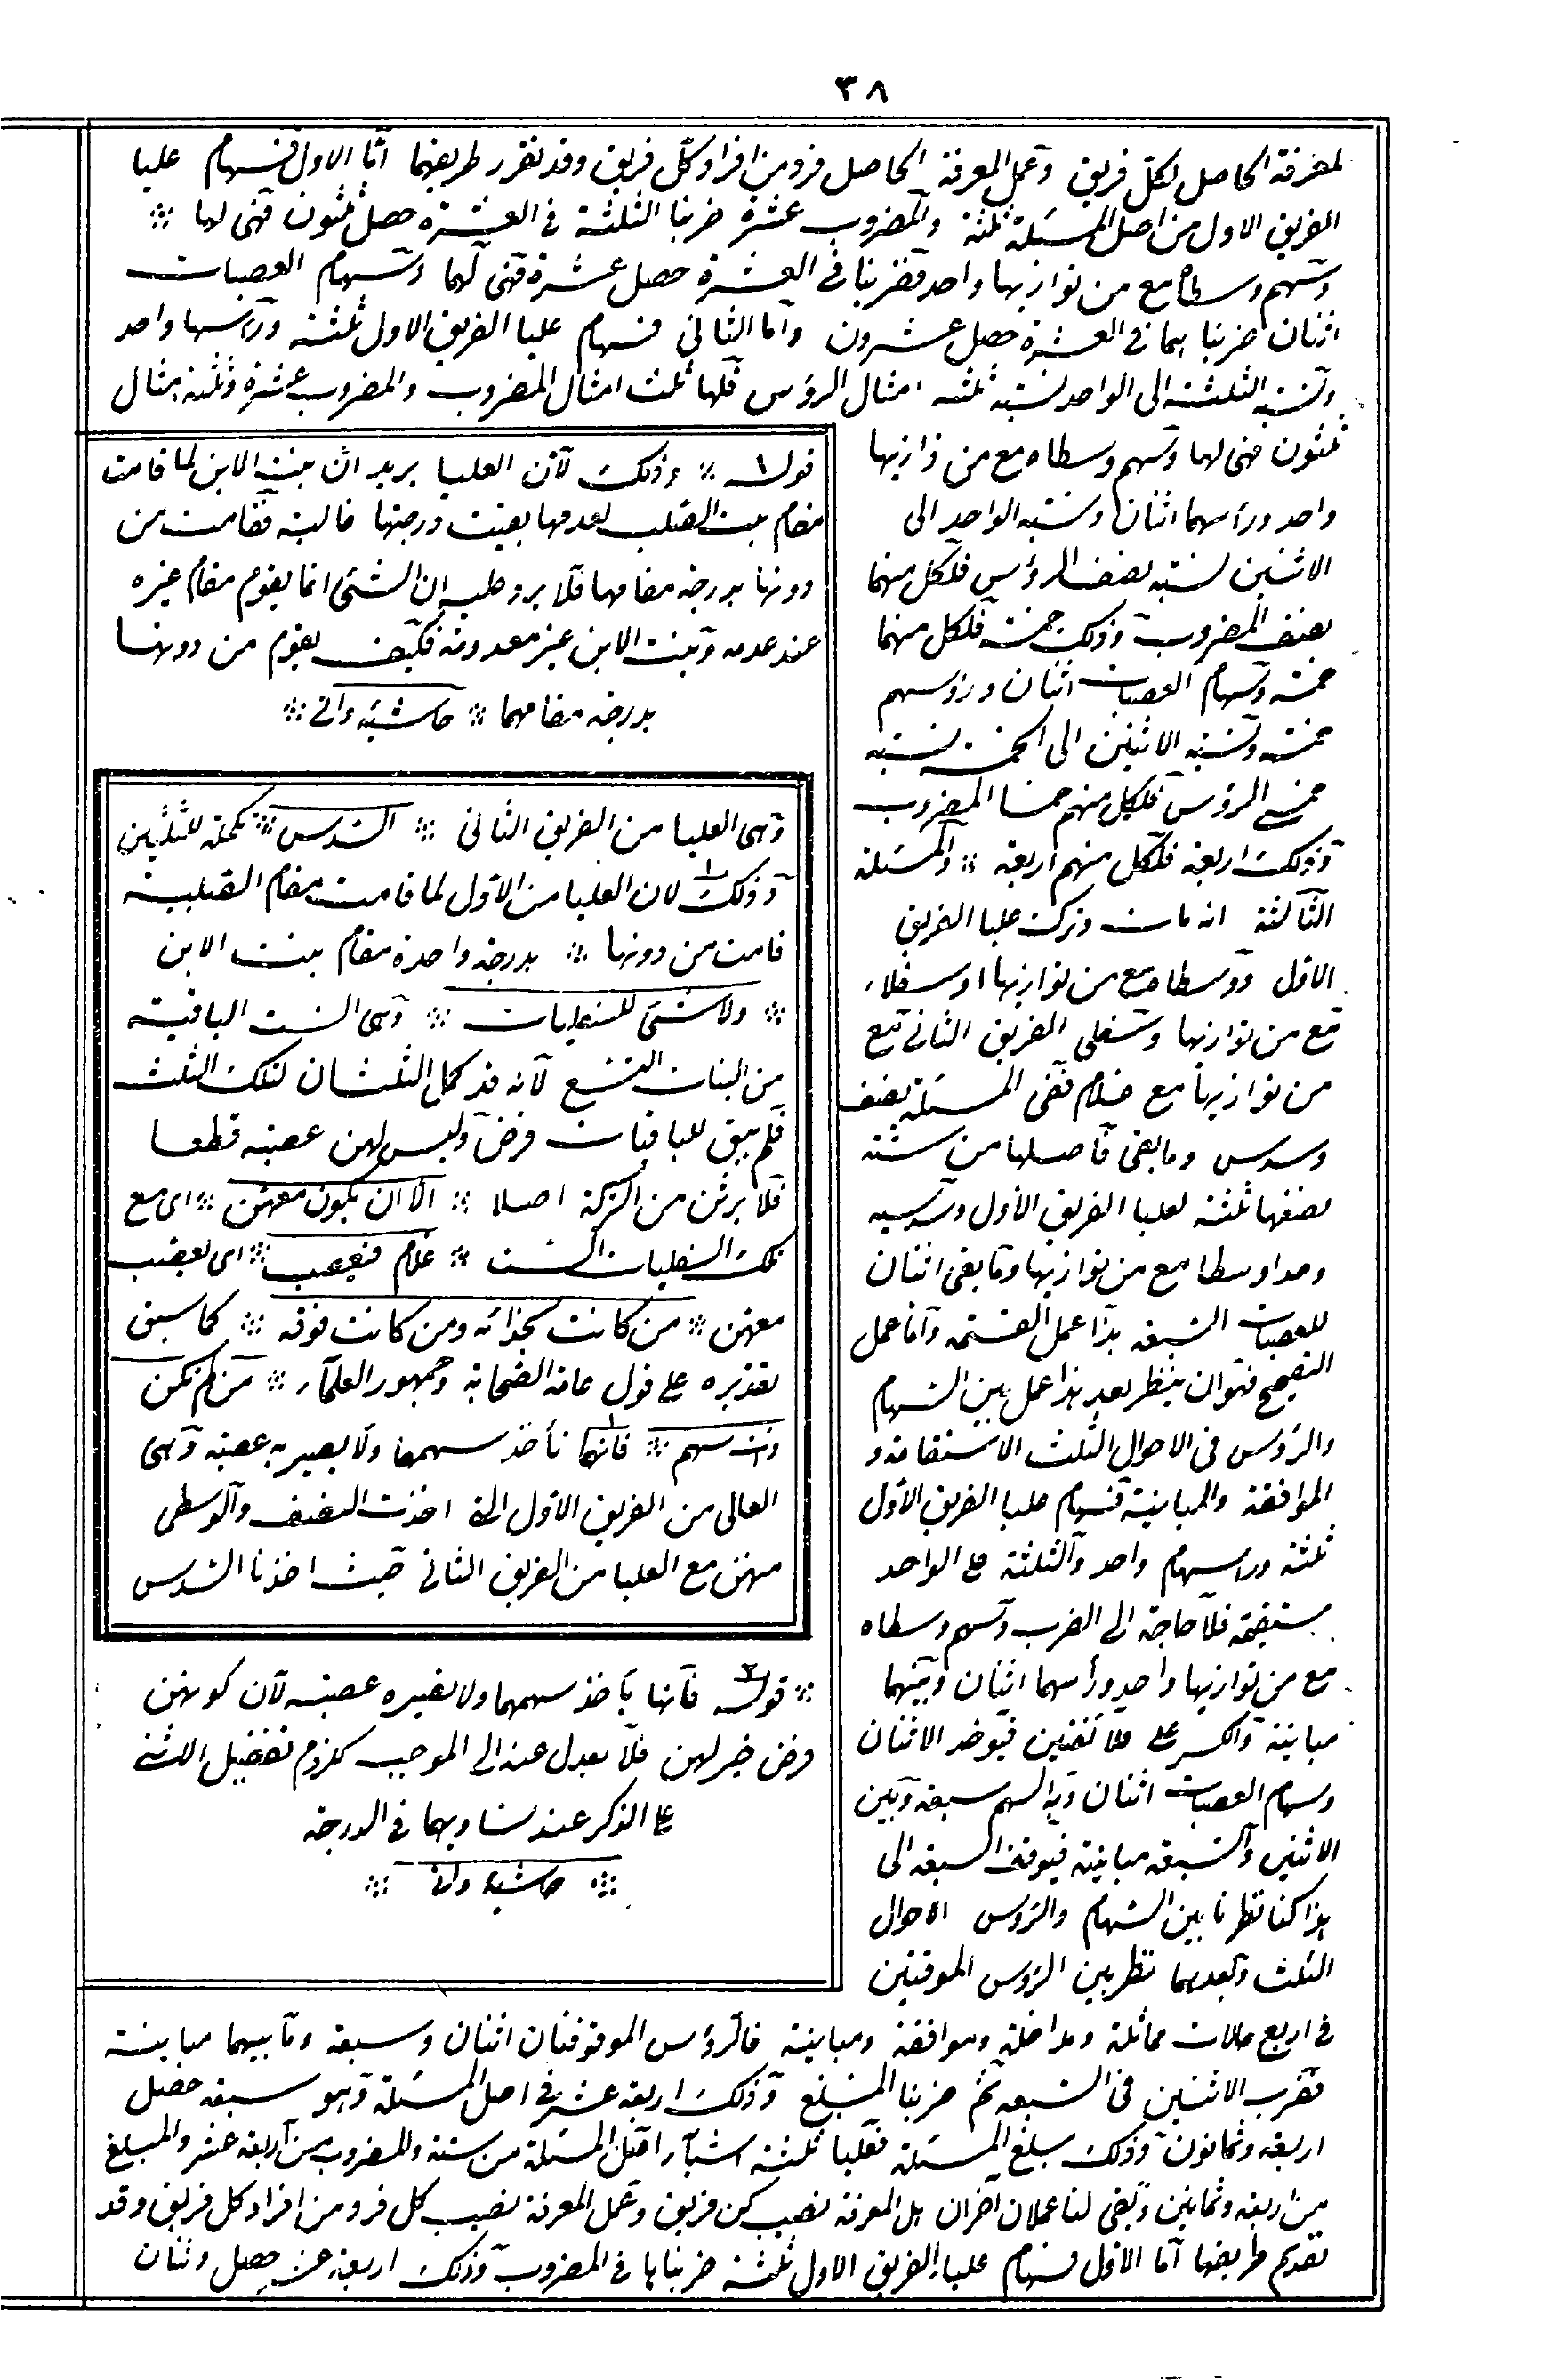 ٣٨
لمعرفة الحاصل لكل فريق وعمل لمعرفة الحاصل فرد من افراد كل فريق وقد تقرر طريقهما امّا الاول فسهام عليا
الفريق الاول من اصل المسئلة ثلثة والمضروب عشرة ضربنا الثلثة فى العشرة حصل ثلثون فهى لها
وسهم وسطاه مع من توازيها واحد فضربنا فى العشرة حصل عشرة فهى لهما وسهام العصبات
اثنان ضربنا هما فى العشرة حصل عشرون واما الثانى فسهام عليا الفريق الاول ثلثة ورأسها واحد
ونسبة الثلثة الى الواحد نسبة ثلثة امثال الرؤس فلها ثلث امثال المضروب والمضروب عشرة وثلثة امثال
ثلثون فهى لها وسهم وسطاه مع من توازيها
واحد ورأسهما اثنان ونسبة الواحد الى
الاثنين نسبة نصف الرؤس فلكل منهما
نصف المضروب وذلك خمسة فلكل منهما
خمسة وسهام العصبات اثنان ورؤسهم
خمسة ونسبة الاثنين الى الخمسة نسبة
خمسى الرؤس فلكل منهم خمسا المضروب
وذلك اربعة فلكل منهم اربعة والمسئلة
الثالثة انه مات وترك عليا الفريق
الاول ووسطاه مع من توازيها او سفلاه
مع من توازيها وسفلى الفريق الثانى مع
من توازيها مع غلام ففى المسئلة نصف
وسدس وما بقى فاصلها من ستة
نصفها ثلثة لعليا الفريق الاول وسدسه
وحد اوسطا مع من توازيها وما بقى اثنان
للعصبات السبعة هذا عمل القسمة واما عمل
التصحيح فهو ان ينظر بعد هذا عمل بين السهام
والرؤس فى الاحوال الثلث الاستقامة و
الموافقة والمباينة فسهام عليا الفريق الاول
ثلثة ورأسهم واحد والثلثة على الواحد
مستقيمة فلا حاجة الى الضرب وسهم وسطاه
مع من توازيها واحد ورأسهما اثنان وبينهما
مباينة والكسر على فيوخذ الاثنان
وسهام العصبات اثنان سبعة وبين
الاثنين والسبعة مباينة فيوقف السبعة الى
هذا كنا نظرنا بين السهام والرؤس الاحوال
الثلث وبعدهما نظر بين الرؤس الموقفين
فى اربع حالات مماثلة ومداخلة وموافقة ومباينة فالرؤس الموقوفتان اثنان وسبعة وما بينهما مباينة
فضرب الاثنين فى السبعة ثم ضربنا المبلغ وذلك اربعة عشر فى اصل المسئلة وهو سبعة حصل
اربعة وثمانون وذلك مبلغ المسئلة فعليا ثلثة اشياء اصل المسئلة من ستة والمضروب من اربعة عشر والمبلغ
من اربعة وثمانين وبقى لنا عملان آخران لمعرفة نصيب كل فريق وعمل لمعرفة نصيب كل فرد من افراد كل فريق وقد
تقدم طريقهما اما الاول فسهام عليا الفريق الاول ثلثة ضربناها فى المضروب وذلك اربعة عشر حصل اثنان
قوله ١ وذلك لان العليا يريد ان بنت الابن لما قامت
مقام بنت الصلب لعدمها بقيت درجتها خالية فقامت من
دونها بدرجة مقامها فلا يرد عليه ان الشئ انما يقوم مقام غيره
عند عدمه وبنت الابن غير معدومة فكيف يقوم من دونها
بدرجة مقامهما حاشية وانى
وهى العليا من الفريق الثانى السدس تكملة للثلثين
وذلك ١ لان العليا من الاول لما قامت مقام الصلبية
قامت من دونها بدرجة واحدة مقام بنت الابن
ولا شئ للسفليات وهى الست الباقية
من البنات التسع لانه قد كمل الثلثان لتلك الثلث
فلم يبق للباقيات فرض وليس لهن عصبة قطعا
فلا يرثن من التركة اصلا الا ان يكون معهن اى مع
تلك السفليات الست غلام فيعصب اى تعصب
معهن من كانت بحذائه ومن كانت فوقه كما سبق
تقديره على قول عامة الصحابة وجمهور العلماء من لم تكن
ذات سهم فانها تأخذ سهمها ولا يصير به عصبة وهى
العالى من الفريق الاول التى اخذت النصف والوسطى
منهن مع العليا من الفريق الثانى حيث اخذتا السدس
قوله ٢ فانها تأخذ سهمها ولا تصيره عصبة لان كونهن
فرض خير لهن فلا يعدل عنه الى الموجب كلزوم تفضيل الانثى
على الذكر عند تساويهما فى الدرجة
حاشية وانى